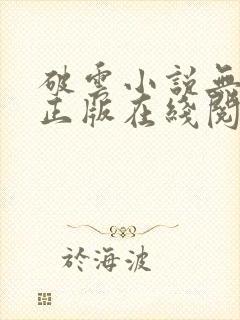 破雲小說無
正版在綫閱
於海波